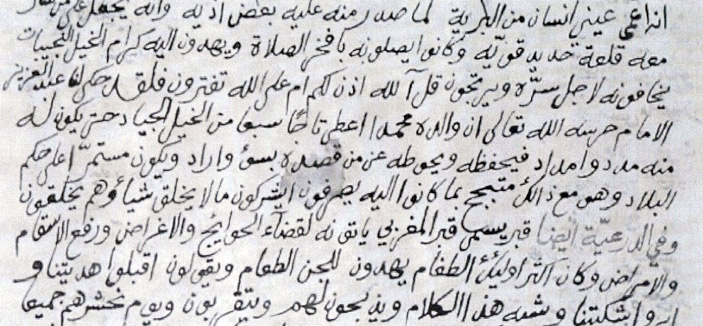 انه اعمى عيني انسان من البرية لما صدر منه عليه بعض اذيه وانه يجعل على من
معه قلعة حديد قويه وكانوا يصلونه بافخر الصلاة ويهدون اليه كرام الخيل النجيبات
يخافونه لاجل سره ويرتجون قل آلله اذن لكم ام على الله تفترون فلقد حكى لنا عبد العزيز
الامام حرسه الله تعالى ان والده محمدا اعطى تاجا سبعا من الخيل الجياد حتى يكون له
منه مدد وامداد فيحفظه ويحوطه عن من قصده بسوء واراد ويكون مستمرا على حكم
البلاد وهو مع ذلك متبجح بما كانوا اليه يصرفون ايشركون ما لا يخلق شيأ وهم يخلقون
وفي الدرعية ايضا قبر يسمى قبر المغربي ياتونه لقضآء الحوايج والاغراض ورفع الاسقام
والامراض وكان اكثر اوليئك الطغام يهدون للجن الطعام ويقولون اقبلوا هديتنا و
ابروا شكيتنا وشبه هذا الكلام ويذبحون لهم ويتقربون ويوم نحشرهم جميعا